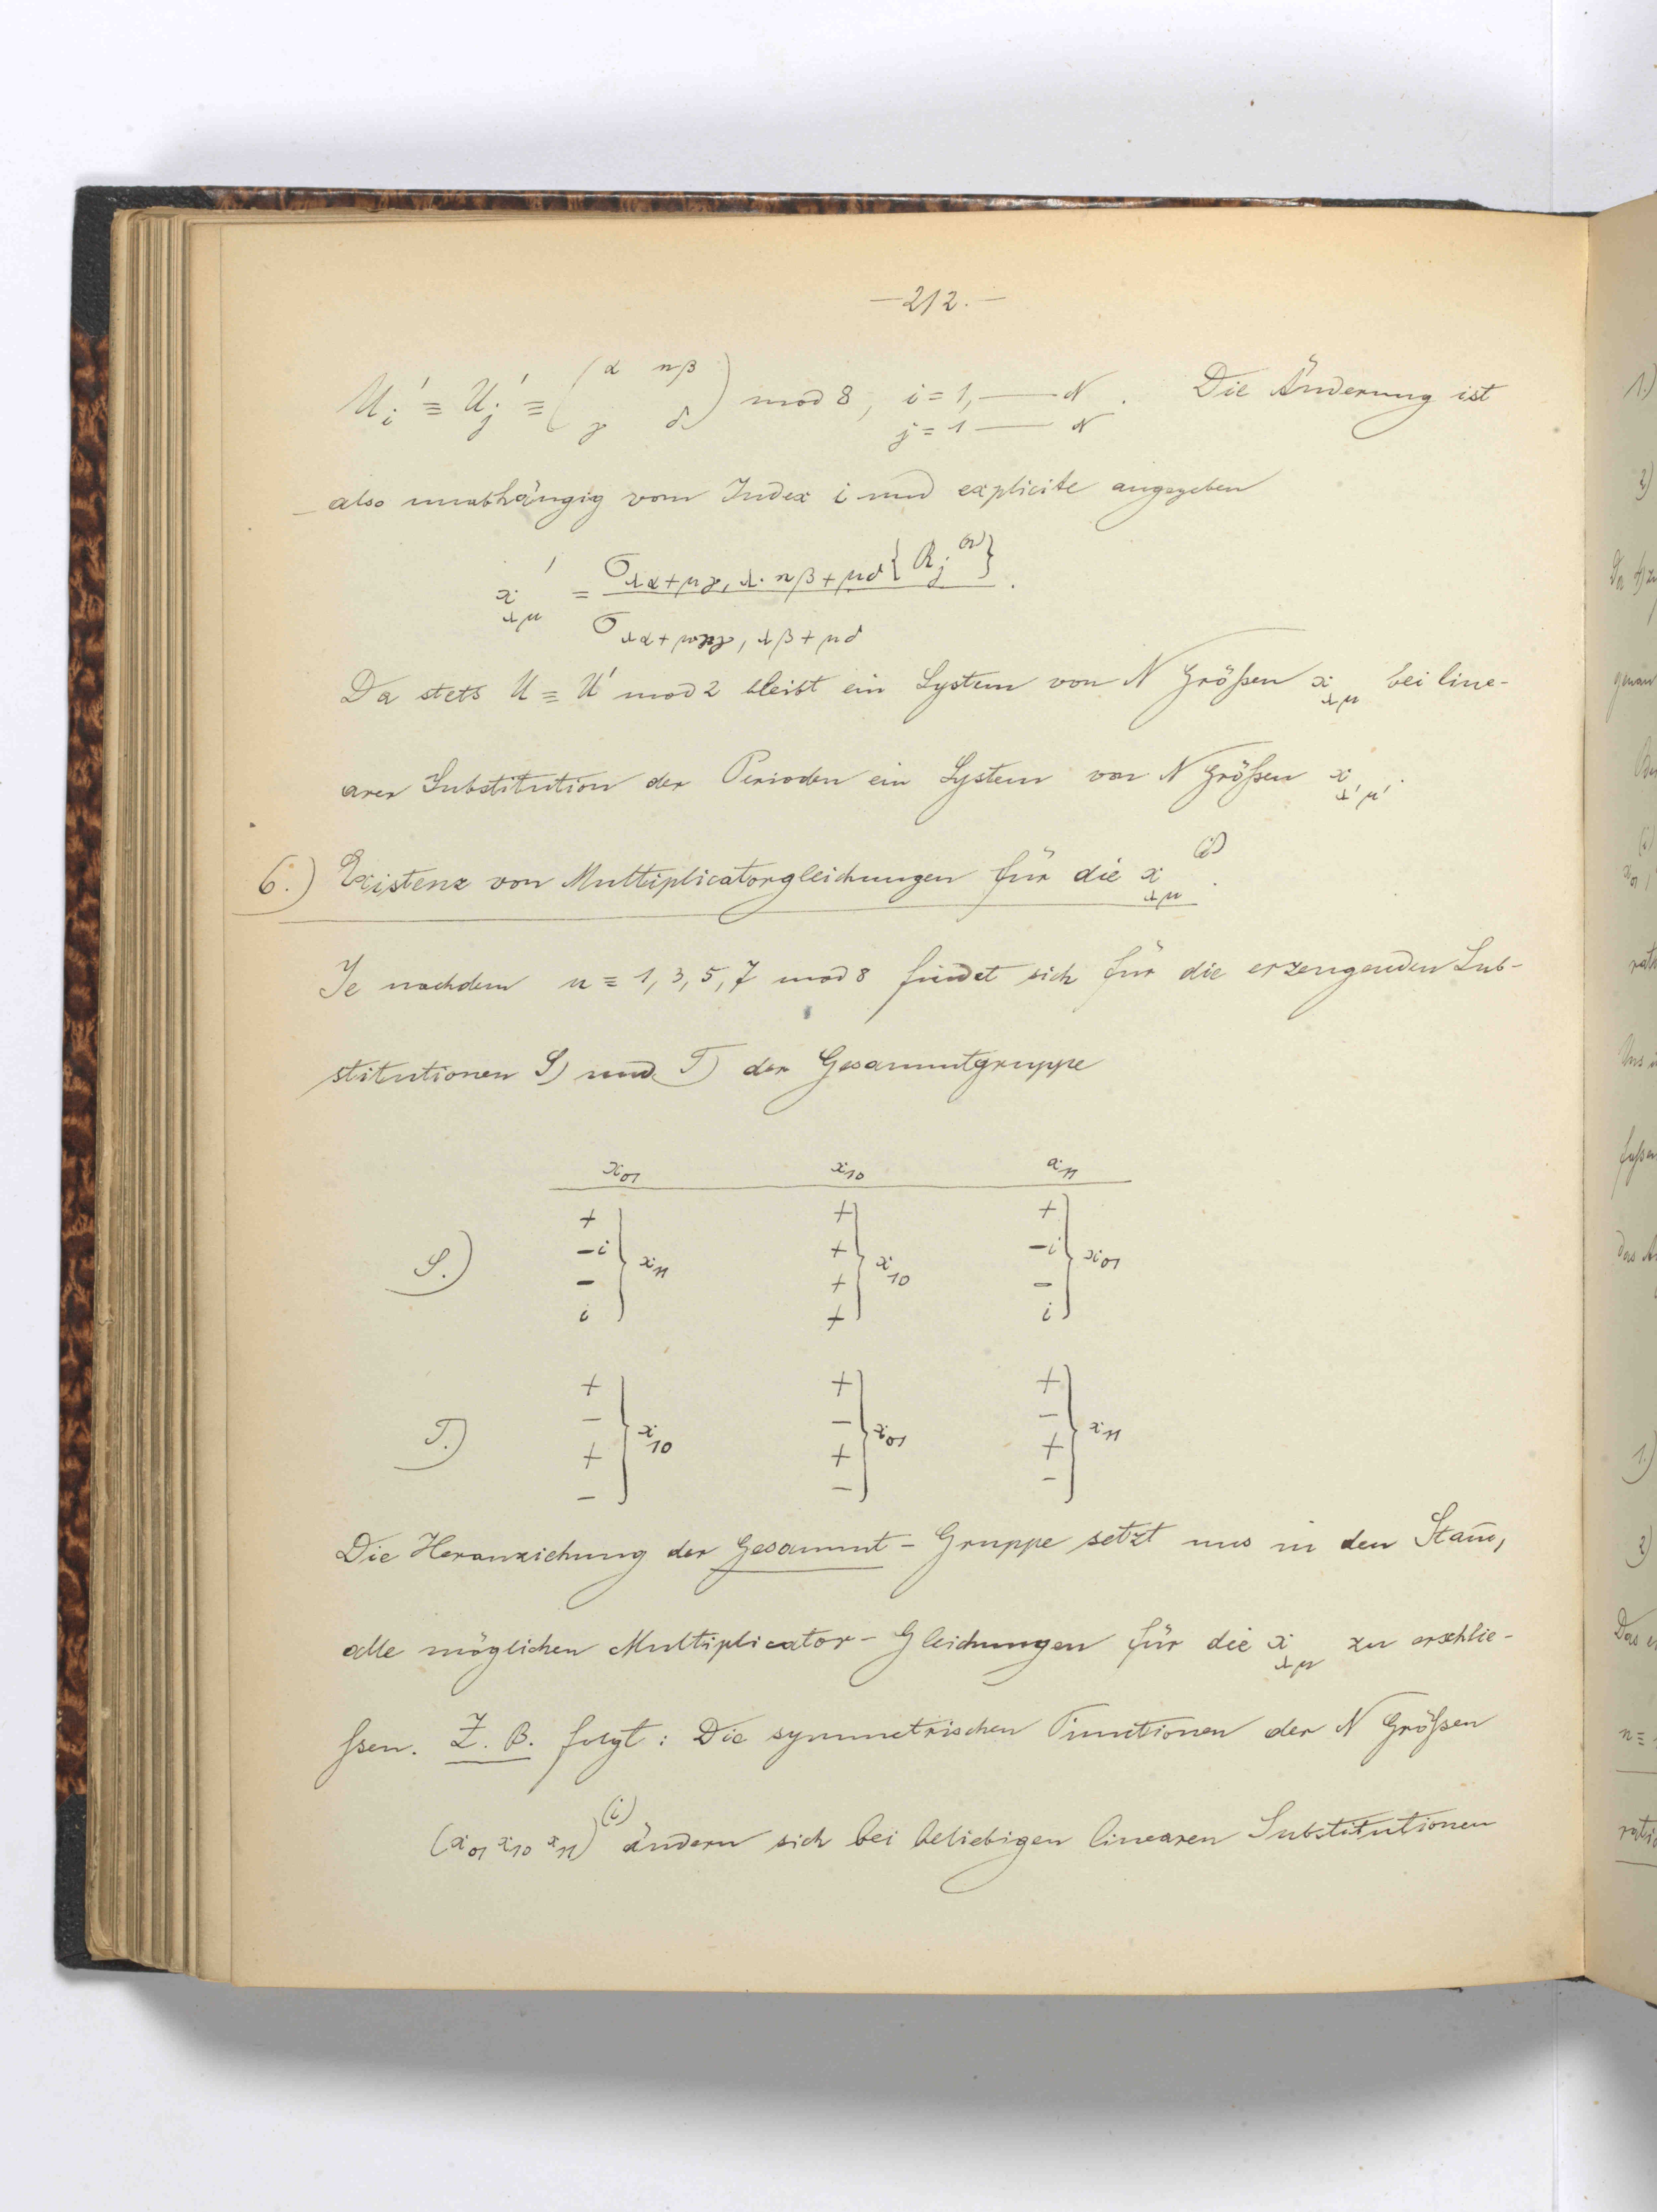 —212.—
U_i' ≡ U_j' ≡ (α nβ
γ δ) mod 8, i = 1, —— N. Die Änderung ist
j = 1 —— N
also unabhängig vom Index i und explicite angegeben
x'_{λμ} = σ_{λα+μγ, λ·nβ+μδ}{R_j^{(n)}} .
σ_{λα+μγ, λβ+μδ}
Da stets U ≡ U' mod 2 bleibt ein System von N Größen x_{λμ} bei line-
arer Substitution der Perioden ein System von N Größen x_{λ'μ'}.
6.) Existenz von Multiplicatorgleichungen für die x_{λμ}^{(i)}.
Je nachdem n ≡ 1, 3, 5, 7 mod 8 findet sich für die erzeugenden Sub-
stitutionen S) und T) der Gesammtgruppe
x_{01} x_{10} x_{11}
+ + +
-i + -i
S.) } x_{11} } x_{10} } x_{01}
- + -
i + i
+ + +
- - -
T.) } x_{10} } x_{01} } x_{11}
+ + +
- - -
Die Heranziehung der Gesammt-Gruppe setzt uns in den Stand,
alle möglichen Multiplicator-Gleichungen für die x_{λμ} zu erschlie-
ssen. Z. B. folgt: Die symmetrischen Functionen der N Größen
(x_{01} x_{10} x_{11})^{(i)} ändern sich bei beliebigen linearen Substitutionen